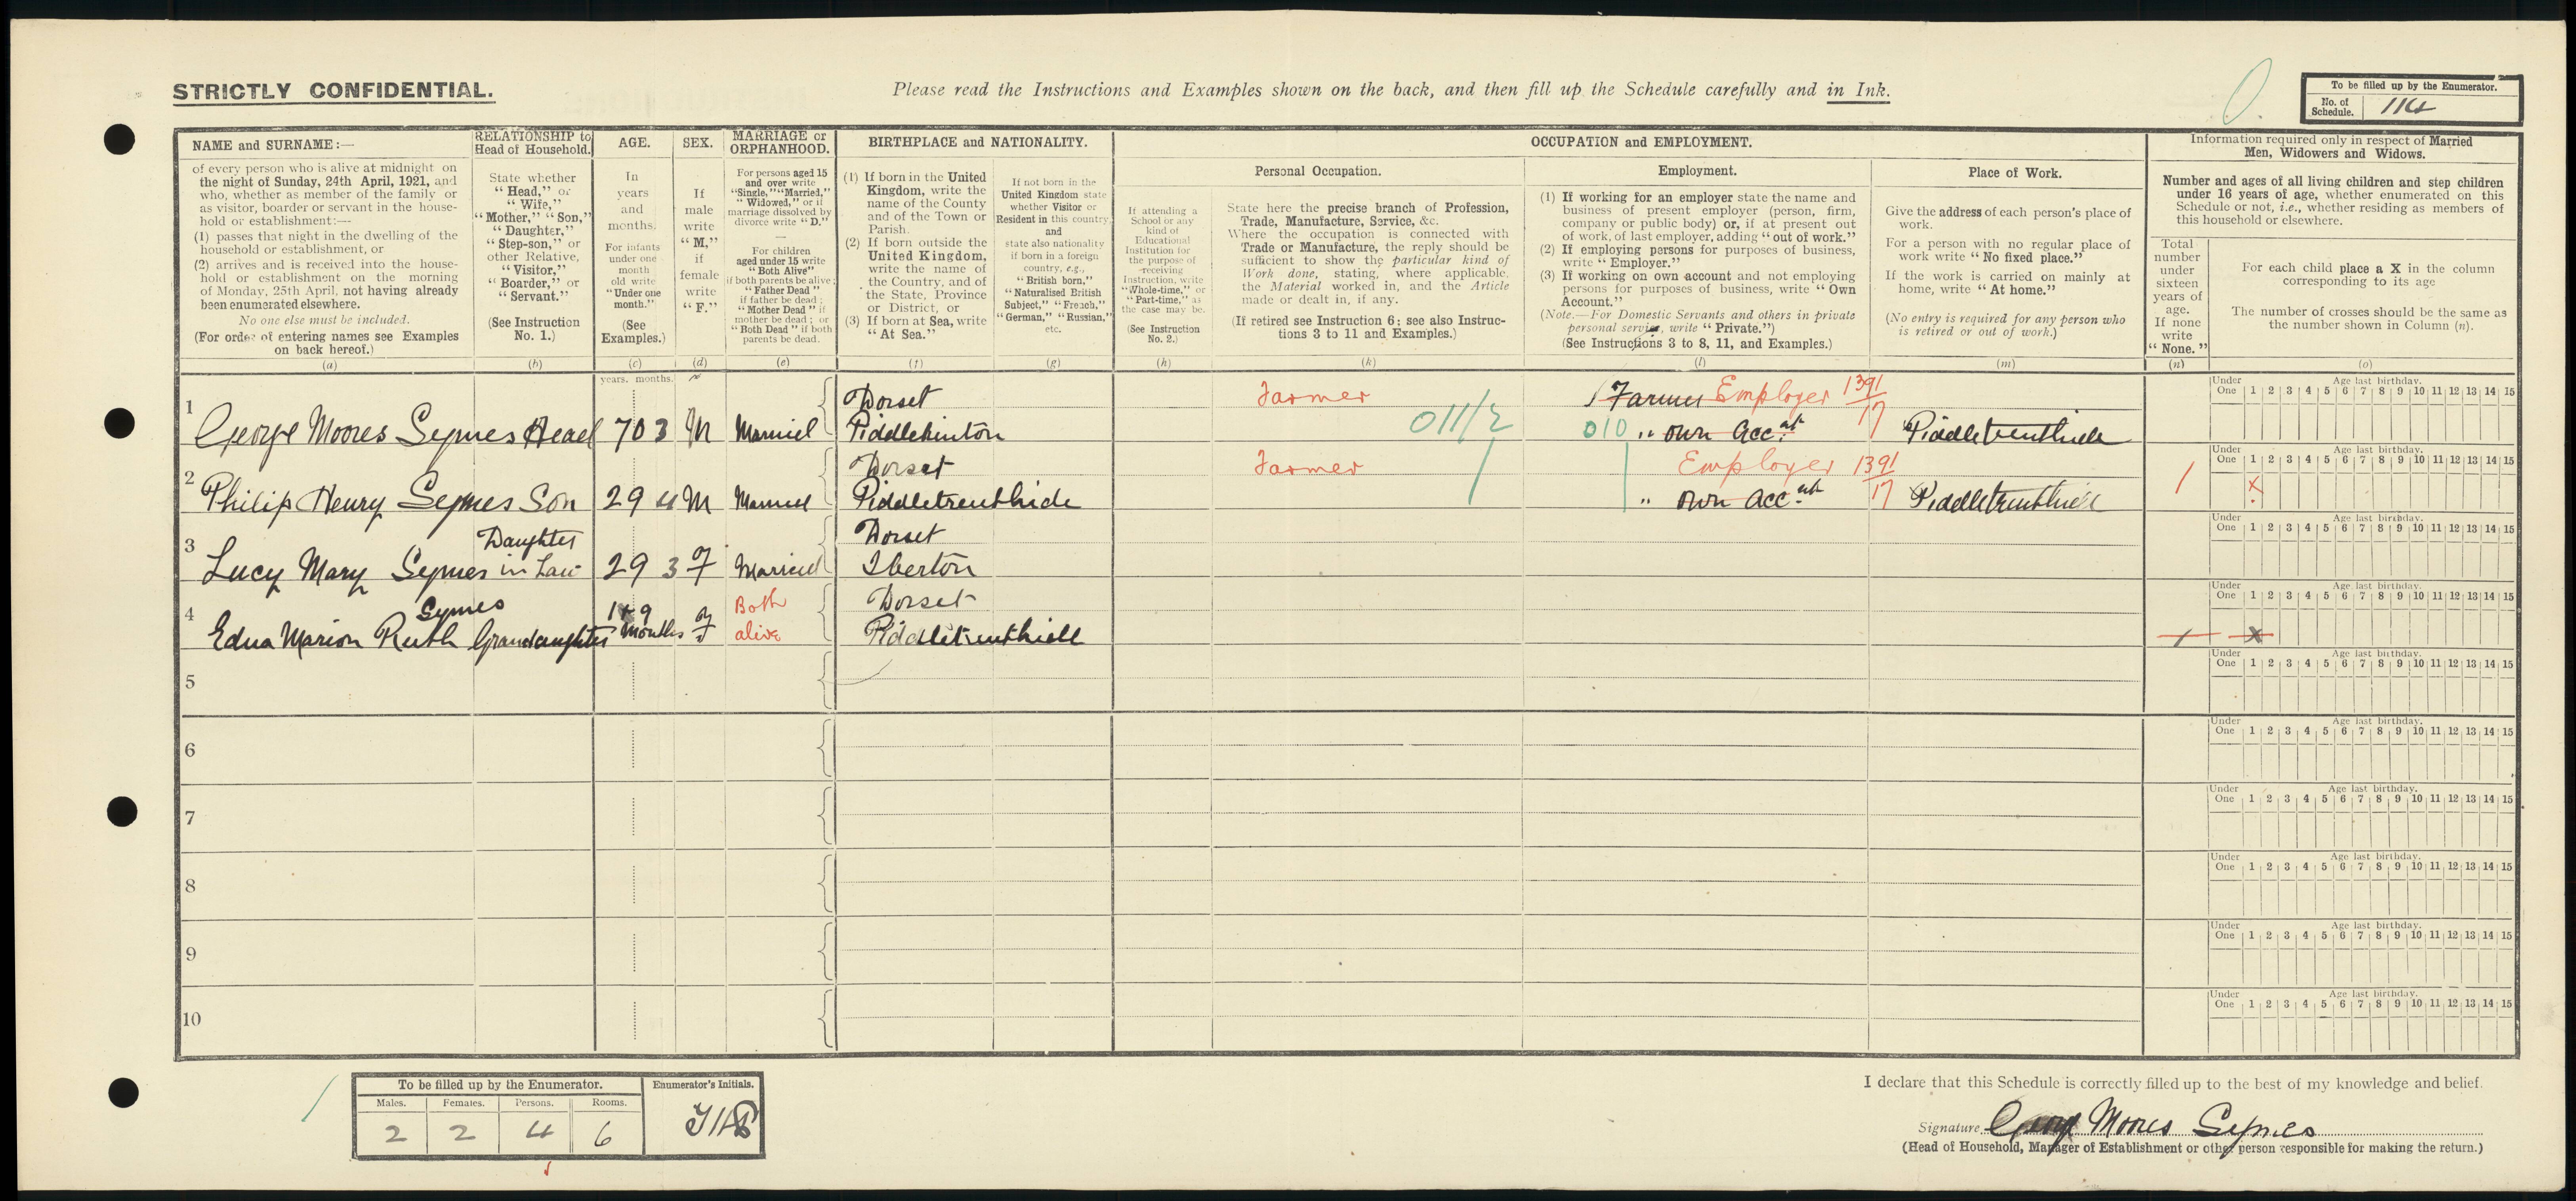 STRICTLY CONFIDENTIAL.
Please read the Instructions and Examples shown on the back, and then fill up the Schedule carefully and in Ink.
To be filled up by the Enumerator.
No. of Schedule. 114
NAME and SURNAME:—
of every person who is alive at midnight on
the night of Sunday, 24th April, 1921, and
who, whether as member of the family or
as visitor, boarder or servant in the house-
hold or establishment:—
(1) passes that night in the dwelling of the
household or establishment, or
(2) arrives and is received into the house-
hold or establishment on the morning
of Monday, 25th April, not having already
been enumerated elsewhere.
No one else must be included.
(For order of entering names see Examples
on back hereof.)
(a)
RELATIONSHIP to
Head of Household.
State whether
"Head," or
"Wife,"
"Mother," "Son,"
"Daughter,"
"Step-son," or
other Relative,
"Visitor,"
"Boarder," or
"Servant."
(See Instruction
No. 1.)
(b)
AGE.
In
years
and
months.
For infants
under one
month
old write
"Under one
month."
(See
Examples.)
(c)
SEX.
If
male
write
"M,"
if
female
write
"F."
(d)
MARRIAGE or
ORPHANHOOD.
For persons aged 15
and over write
"Single," "Married,"
"Widowed," or if
marriage dissolved by
divorce write "D."
For children
aged under 15 write
"Both Alive"
if both parents be alive;
"Father Dead"
if father be dead;
"Mother Dead" if
mother be dead; or
"Both Dead" if both
parents be dead.
(e)
BIRTHPLACE and NATIONALITY.
(1) If born in the United
Kingdom, write the
name of the County
and of the Town or
Parish.
(2) If born outside the
United Kingdom,
write the name of
the Country, and of
the State, Province
or District, or
(3) If born at Sea, write
"At Sea."
(f)
If not born in the
United Kingdom state
whether Visitor or
Resident in this country,
and
state also nationality
if born in a foreign
country, e.g.,
"British born,"
"Naturalised British
Subject," "French,"
"German," "Russian,"
etc.
(g)
OCCUPATION and EMPLOYMENT.
If attending a
School or any
kind of
Educational
Institution for
the purpose of
receiving
Instruction, write
"Whole-time," or
"Part-time," as
the case may be.
(See Instruction
No. 2.)
(h)
Personal Occupation.
State here the precise branch of Profession,
Trade, Manufacture, Service, &c.
Where the occupation is connected with
Trade or Manufacture, the reply should be
sufficient to show the particular kind of
Work done, stating, where applicable,
the Material worked in, and the Article
made or dealt in, if any.
(If retired see Instruction 6; see also Instruc-
tions 3 to 11 and Examples.)
(k)
Employment.
(1) If working for an employer state the name and
business of present employer (person, firm,
company or public body) or, if at present out
of work, of last employer, adding "out of work."
(2) If employing persons for purposes of business,
write "Employer."
(3) If working on own account and not employing
persons for purposes of business, write "Own
Account."
(Note.—For Domestic Servants and others in private
personal service, write "Private.")
(See Instructions 3 to 8, 11, and Examples.)
(l)
Place of Work.
Give the address of each person's place of
work.
For a person with no regular place of
work write "No fixed place."
If the work is carried on mainly at
home, write "At home."
(No entry is required for any person who
is retired or out of work.)
(m)
Information required only in respect of Married
Men, Widowers and Widows.
Number and ages of all living children and step children
under 16 years of age, whether enumerated on this
Schedule or not, i.e., whether residing as members of
this household or elsewhere.
Total
number
under
sixteen
years of
age.
If none
write
"None."
(n)
For each child place a X in the column
corresponding to its age
The number of crosses should be the same as
the number shown in Column (n).
(o)
years. months.
1 George Moores Symes Head 70 3 M Married Dorset Piddlehinton Farmer 011/2 Farmer Employer 1391/17
010 " own Acc.nt Piddletrenthide
Under One Age last birthday. 1 2 3 4 5 6 7 8 9 10 11 12 13 14 15
2 Philip Henry Symes Son 29 4 M Married Dorset Piddletrenthide Farmer Employer 1391/17
" own Acc.nt Piddletrenthide 1 X
Under One Age last birthday. 1 2 3 4 5 6 7 8 9 10 11 12 13 14 15
3 Lucy Mary Symes Daughter in Law 29 3 F Married Dorset Iberton
Under One Age last birthday. 1 2 3 4 5 6 7 8 9 10 11 12 13 14 15
4 Edna Marion Ruth Symes Grandaughter 1 9 Months F Both alive Dorset Piddletrenthide 1 X
Under One Age last birthday. 1 2 3 4 5 6 7 8 9 10 11 12 13 14 15
5
Under One Age last birthday. 1 2 3 4 5 6 7 8 9 10 11 12 13 14 15
6
Under One Age last birthday. 1 2 3 4 5 6 7 8 9 10 11 12 13 14 15
7
Under One Age last birthday. 1 2 3 4 5 6 7 8 9 10 11 12 13 14 15
8
Under One Age last birthday. 1 2 3 4 5 6 7 8 9 10 11 12 13 14 15
9
Under One Age last birthday. 1 2 3 4 5 6 7 8 9 10 11 12 13 14 15
10
Under One Age last birthday. 1 2 3 4 5 6 7 8 9 10 11 12 13 14 15
To be filled up by the Enumerator.
Enumerator's Initials.
Males. Females. Persons. Rooms.
2 2 4 6
I declare that this Schedule is correctly filled up to the best of my knowledge and belief.
Signature George Moores Symes
(Head of Household, Manager of Establishment or other person responsible for making the return.)